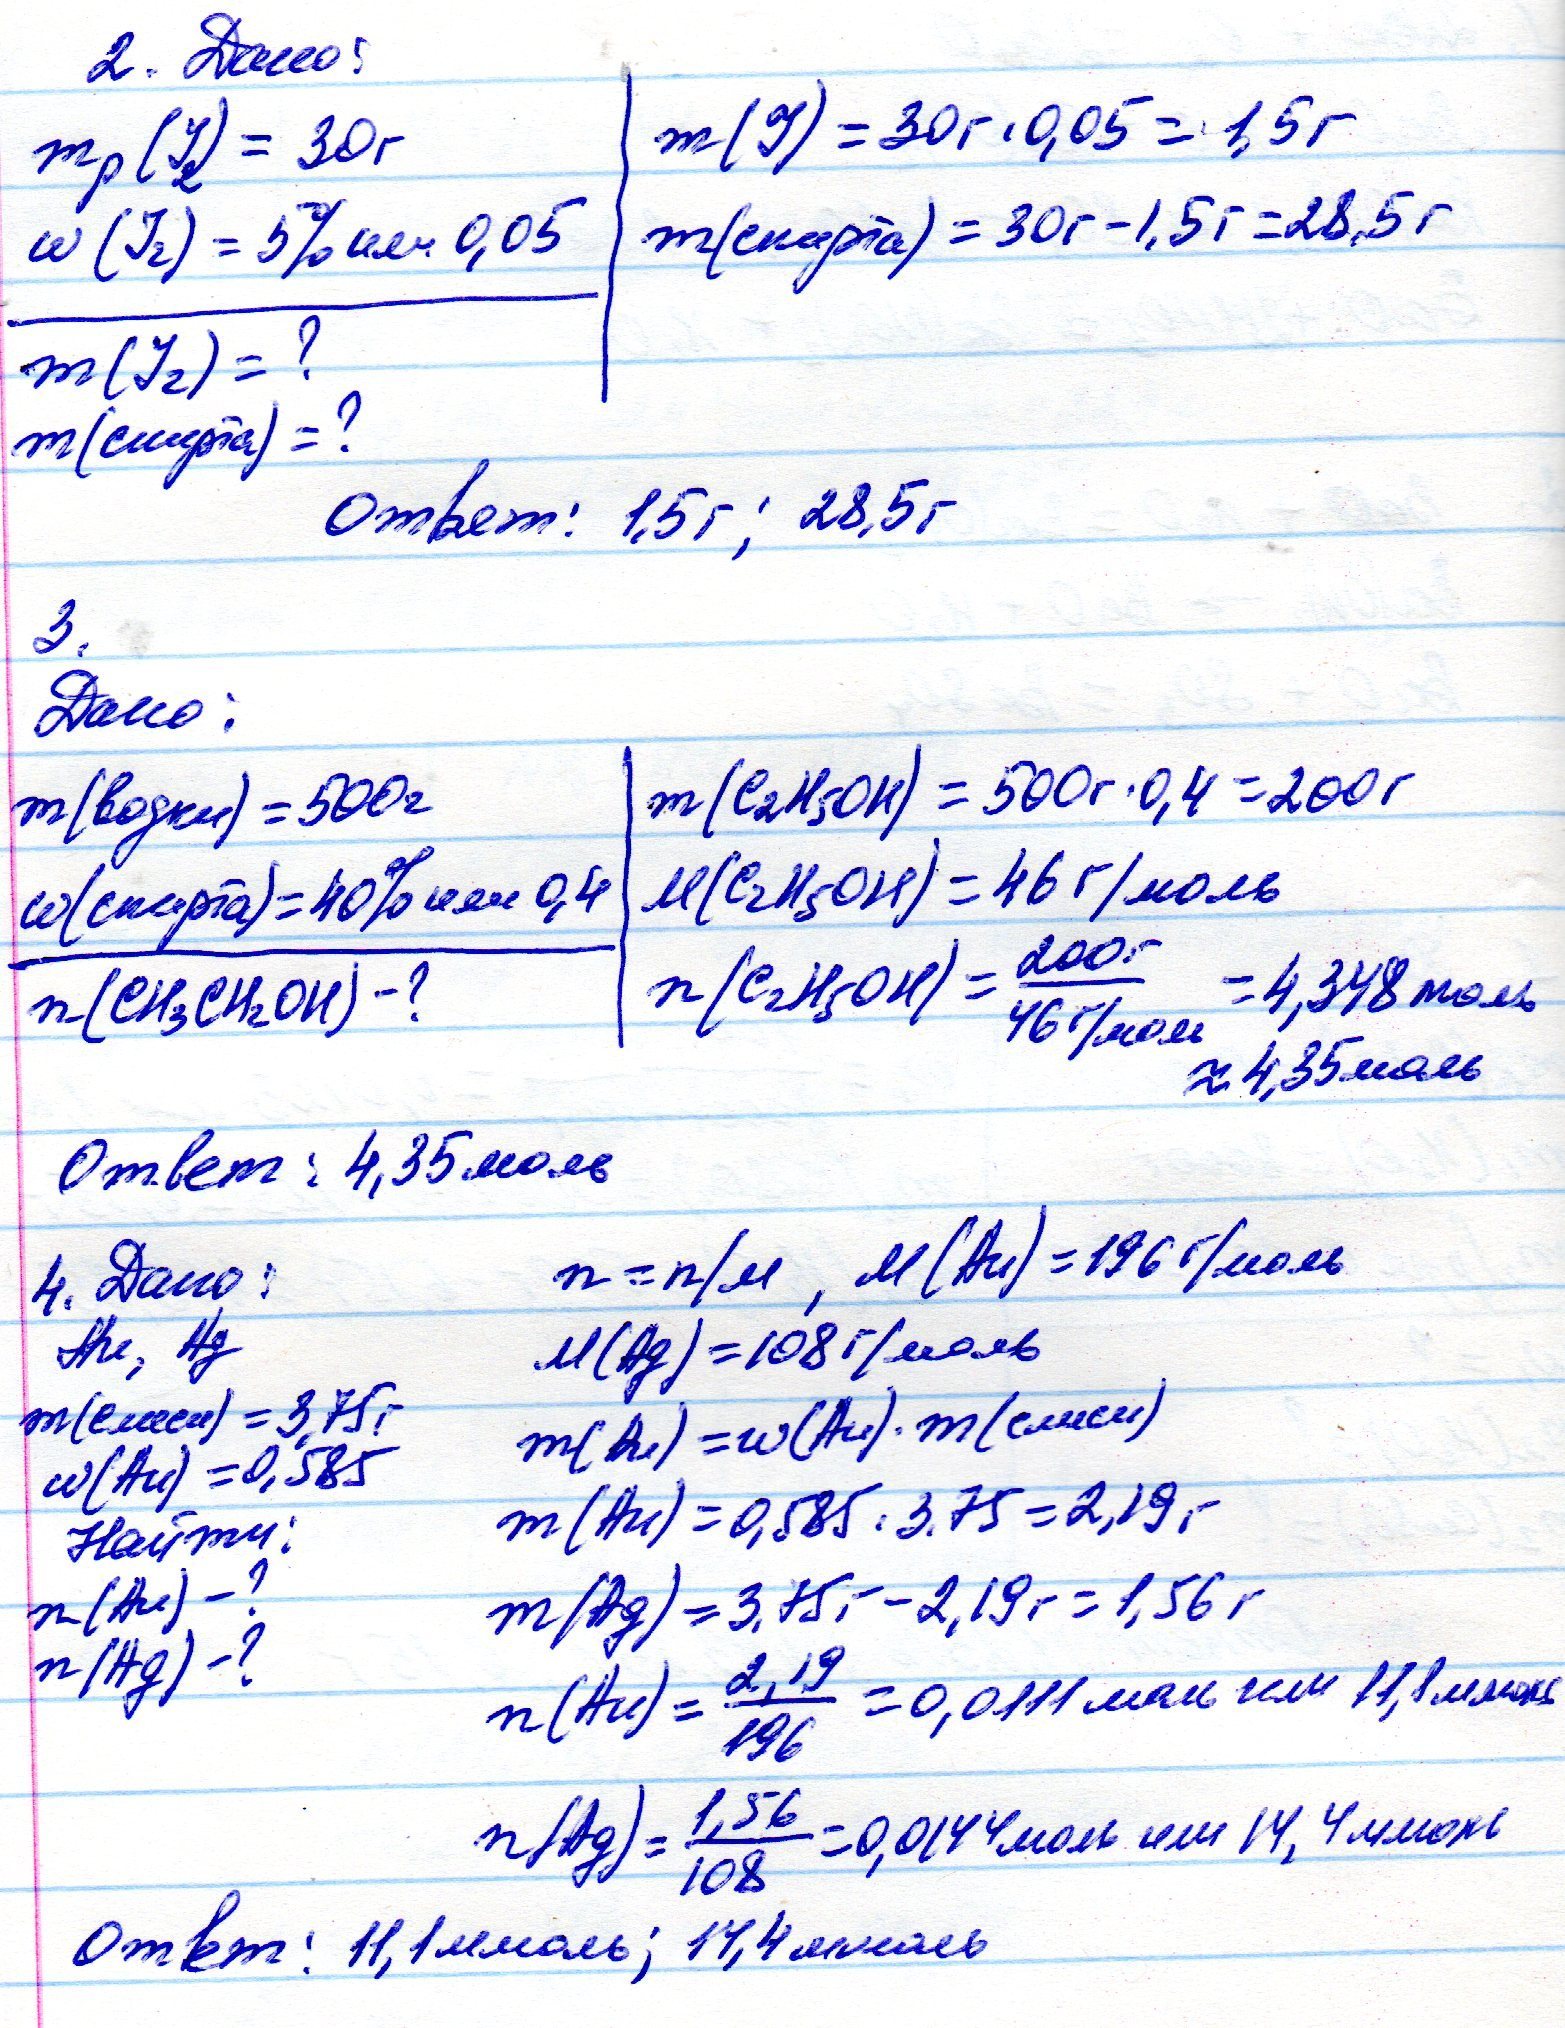 2. Дано:
mр(J2) = 30г
w(J2) = 5% или 0,05
m(J2) = ?
m(спирта) = ?
m(J) = 30г · 0,05 = 1,5г
m(спирта) = 30г - 1,5г = 28,5г
Ответ: 1,5г; 28,5г
3.
Дано:
m(водки) = 500г
w(спирта) = 40% или 0,4
n(CH3CH2OH) - ?
m(C2H5OH) = 500г · 0,4 = 200г
M(C2H5OH) = 46 г/моль
n(C2H5OH) = 200г / 46г/моль = 4,348 моль
≈ 4,35 моль
Ответ: 4,35 моль
4. Дано:
Au, Ag
m(смеси) = 3,75г
w(Au) = 0,585
Найти:
n(Au) - ?
n(Ag) - ?
n = n/M , M(Au) = 196 г/моль
M(Ag) = 108 г/моль
m(Au) = w(Au) · m(смеси)
m(Au) = 0,585 · 3.75 = 2,19г
m(Ag) = 3,75г - 2,19г = 1,56г
n(Au) = 2,19 / 196 = 0,0111 моль или 11,1 ммоль
n(Ag) = 1,56 / 108 = 0,0144 моль или 14,4 ммоль
Ответ: 11,1 ммоль; 14,4 ммоль